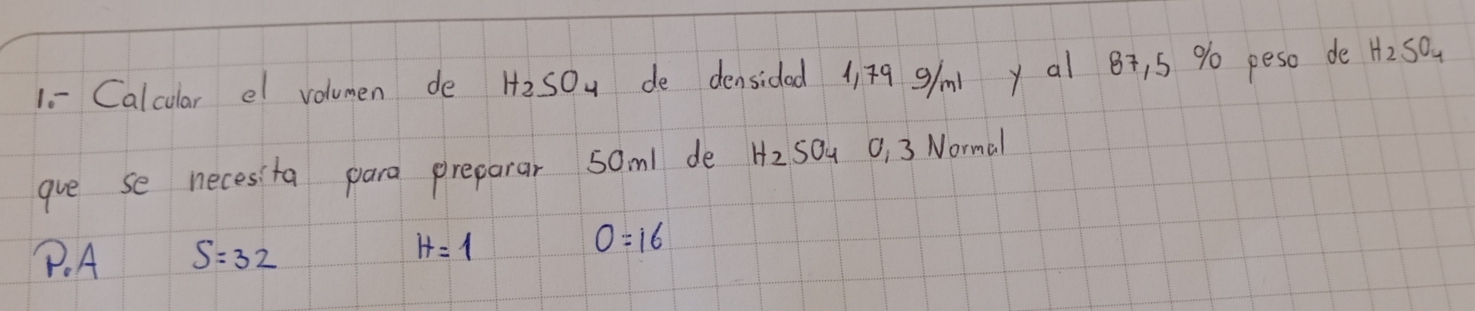 1.- Calcular el volumen de H2SO4 de densidad 1,79 g/ml y al 87,5 % peso de H2SO4
que se necesita para preparar 50ml de H2SO4 0,3 Normal
P.A S=32 H=1 O=16